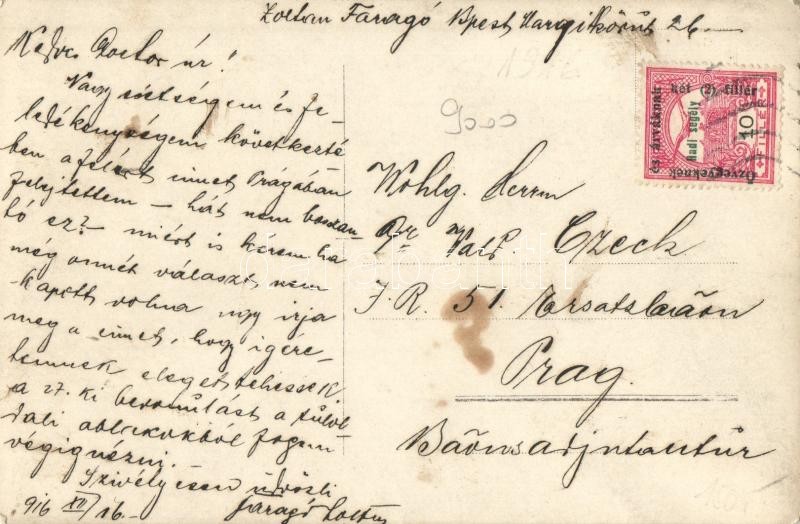 Zoltan Faragó Bpest Hargi körút 26.
Kedves Doctor úr!
Nagy sietségem és fe-
ledékenységem következté-
ben a felírt címet Prágában
felejtettem – hát nem bosszan-
tó ez? – miért is kérem ha
még onnét választ nem
kapott volna úgy írja
meg a címet, hogy igére-
temnek eleget tehessek
a 27. ki bevonulást a túlol-
dali ablakokból fogom
végignézni.
Szivélyesen üdvözli
Faragó Zoltán
916 XII/16.
9000
Wohlg. Herrn
Dr Czeck
J. R. 51. Ersatzbaōn
Prag.
Baōnsadjutantur
Özvegyeknek
és árváknak
két (2) fillér
Hadi segély
10
FILLÉR